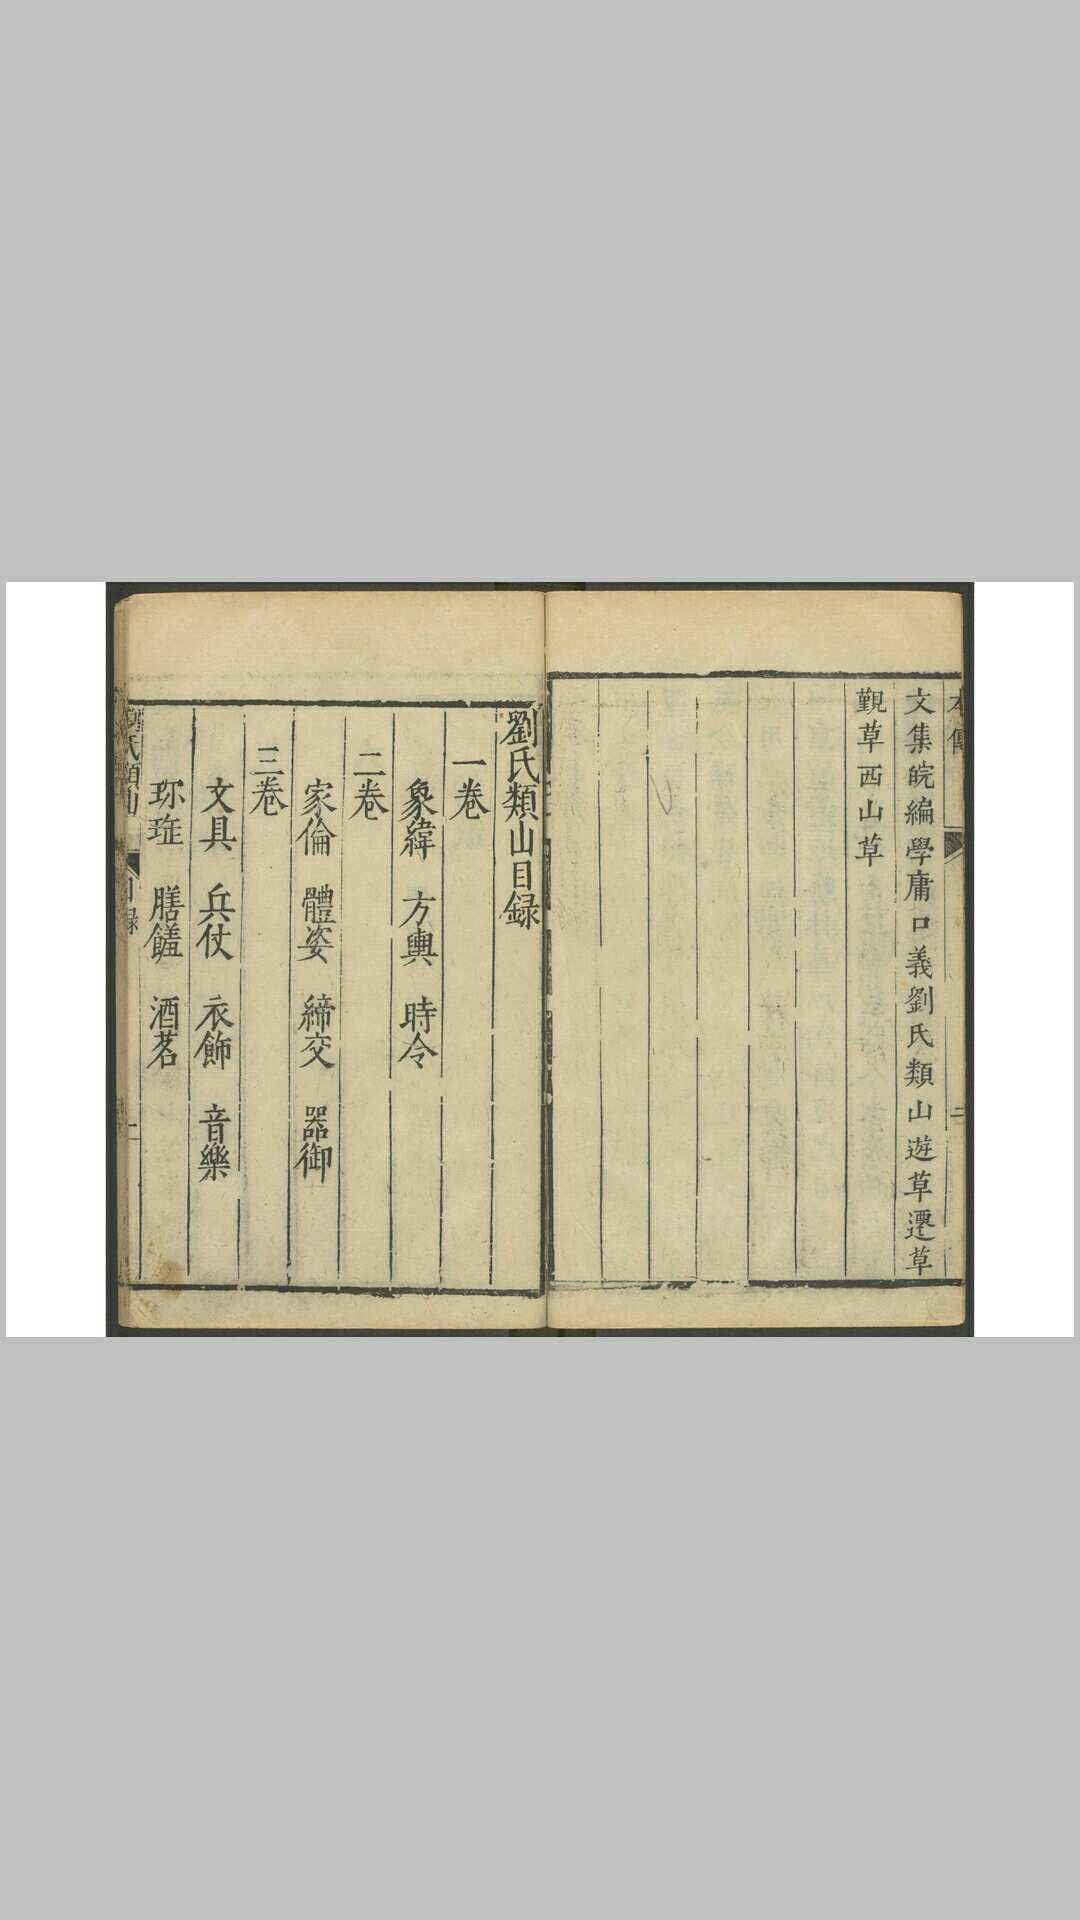 本傳
二
文集皖編學庸口義劉氏類山遊草遷草
覲草西山草
劉氏類山目録
一卷
象緯 方輿 時令
二卷
家倫 體姿 締交 器御
三卷
文具 兵仗 衣飾 音樂
珎 膳饈 酒茗
劉氏類山
目録
一